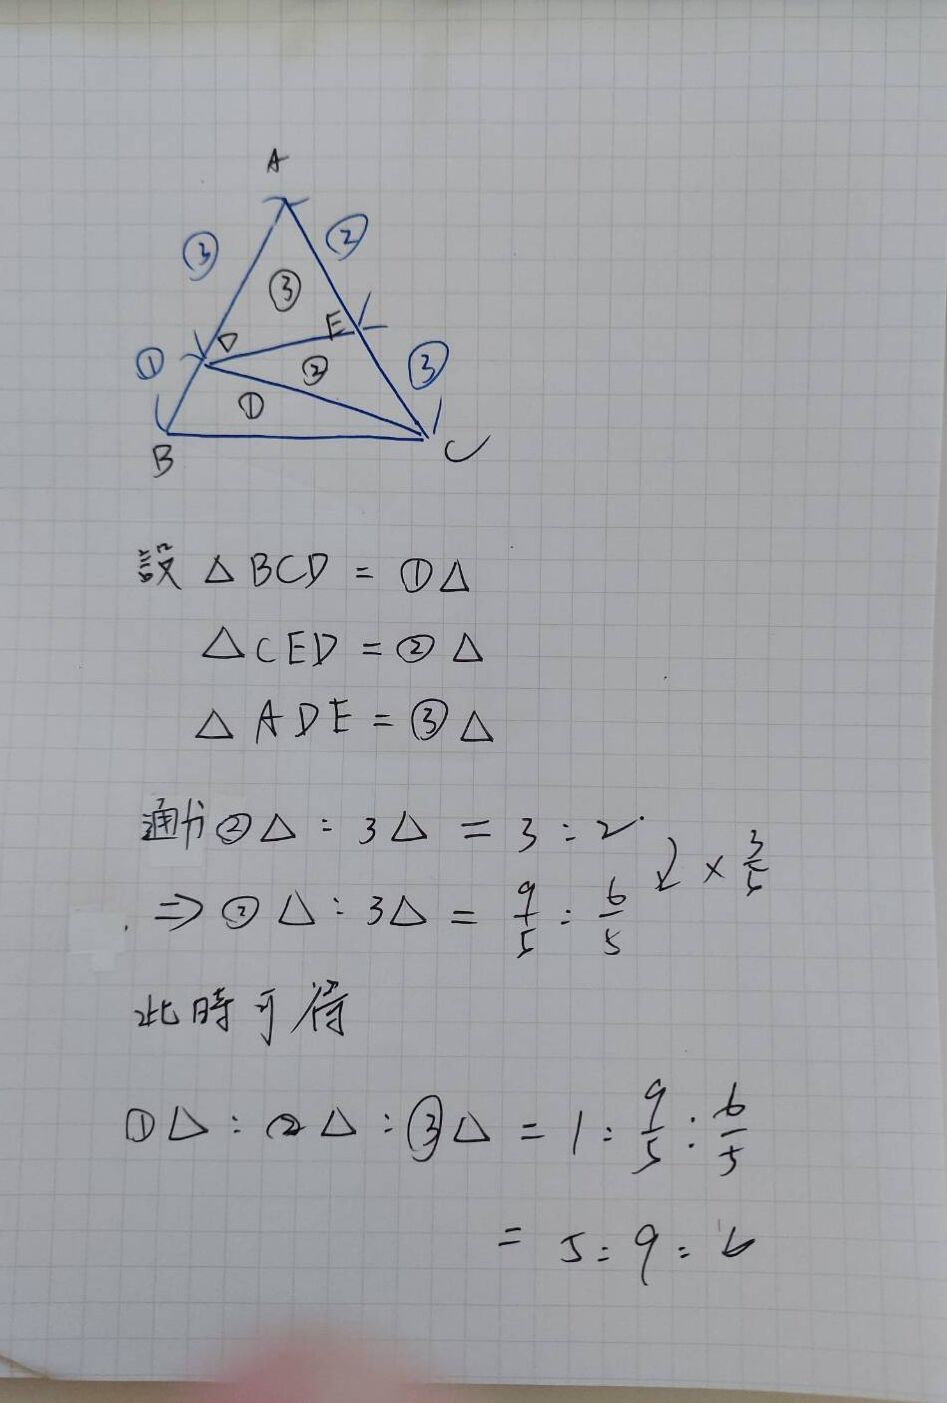 A
③ ②
③
D E
① ② ③
①
B C
設 △BCD = ①△
△CED = ②△
△ADE = ③△
通分②△ : 3△ = 3 : 2
⇒ ②△ : 3△ = 9/5 : 6/5 × 3/5
此時可得
①△ : ②△ : ③△ = 1 : 9/5 : 6/5
= 5 : 9 : 6